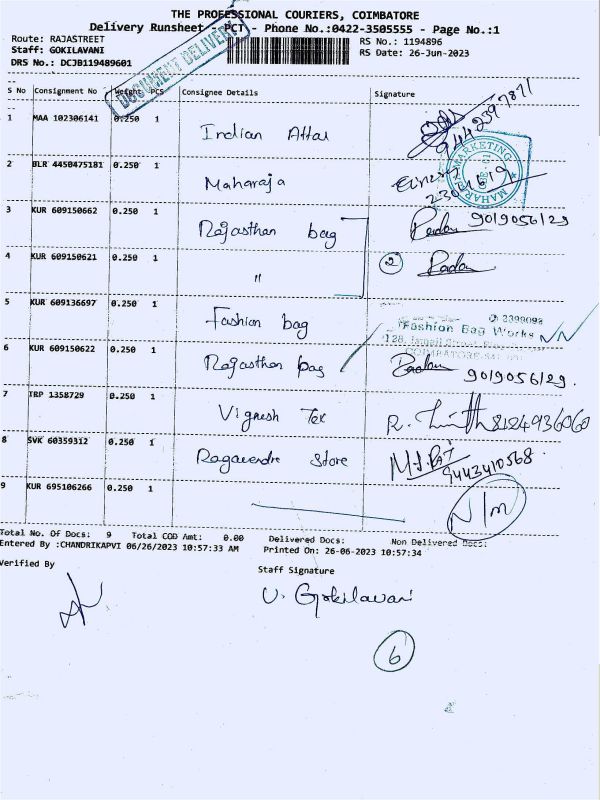 THE PROFESSIONAL COURIERS, COIMBATORE
Delivery Runsheet - PCT - Phone No.:0422-3505555 - Page No.:1
Route: RAJASTREET RS No.: 1194896
Staff: GOKILAVANI RS Date: 26-Jun-2023
DRS No.: DCJB119489601
DOCUMENT DELIVERY
S No Consignment No Weight PCS Consignee Details Signature
1 MAA 102306141 0.250 1 Indian Attar 9442397871
2 BLR 4450475181 0.250 1 Maharaja
MAHARAJA MARKETING
3 KUR 609150662 0.250 1 Rajasthan bag 9019056129
4 KUR 609150621 0.250 1 " 2
5 KUR 609136697 0.250 1 Fashion bag
2399098
Fashion Bag Works
6 KUR 609150622 0.250 1 Rajasthan bag 9019056129.
7 TRP 1358729 0.250 1 Vignesh Tex 8124936060
8 SVK 60359312 0.250 1 Ragavendre Store 9443410568.
9 KUR 695106266 0.250 1 N/m
Total No. Of Docs: 9 Total COD Amt: 0.00 Delivered Docs: Non Delivered Docs:
Entered By :CHANDRIKAPVI 06/26/2023 10:57:33 AM Printed On: 26-06-2023 10:57:34
Verified By Staff Signature
V. Gokilavani
6